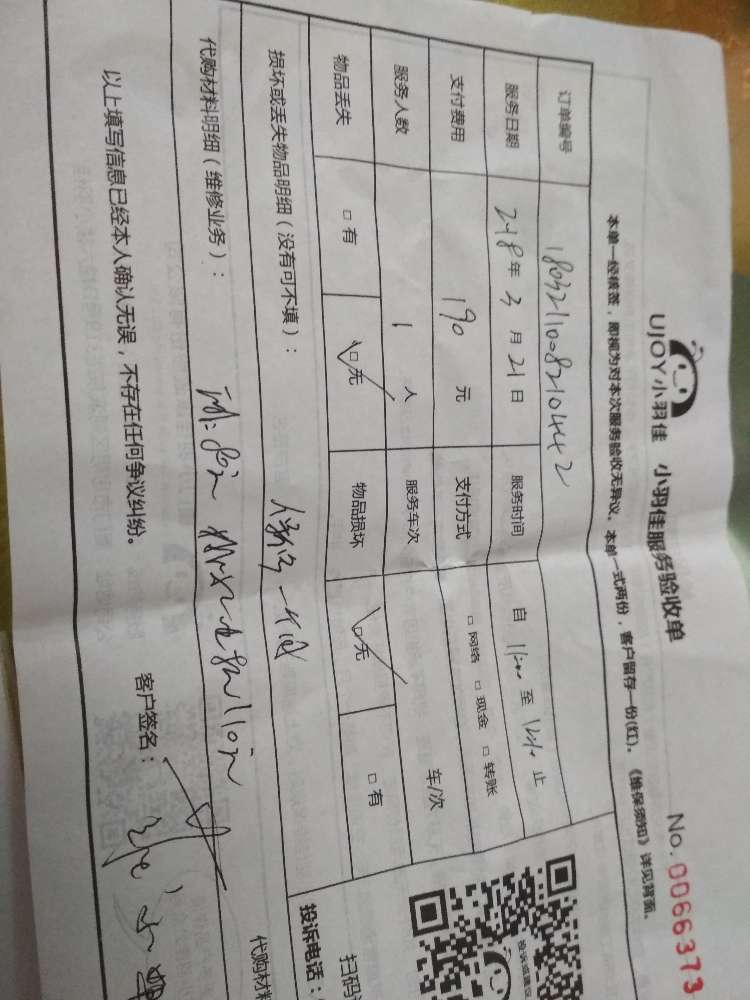 UJOY小羽佳 小羽佳服务验收单
No. 0066373
本单一经核签，即视为对本次服务验收无异议。本单一式两份，客户留存一份(红)。《维保须知》详见背面。
订单编号 180321100821044 2
服务日期 2018年3月21日 服务时间 自 11:00 至 12:00 止
支付费用 190 元 支付方式 □网络 □现金 □转账
服务人数 1 人 服务车次 车/次
物品丢失 □有 □无 物品损坏 □无 □有
损坏或丢失物品明细（没有可不填）：
代购材料明细（维修业务）：
代购材料
以上填写信息已经本人确认无误，不存在任何争议纠纷。
客户签名：
投诉建议
扫码
投诉电话：